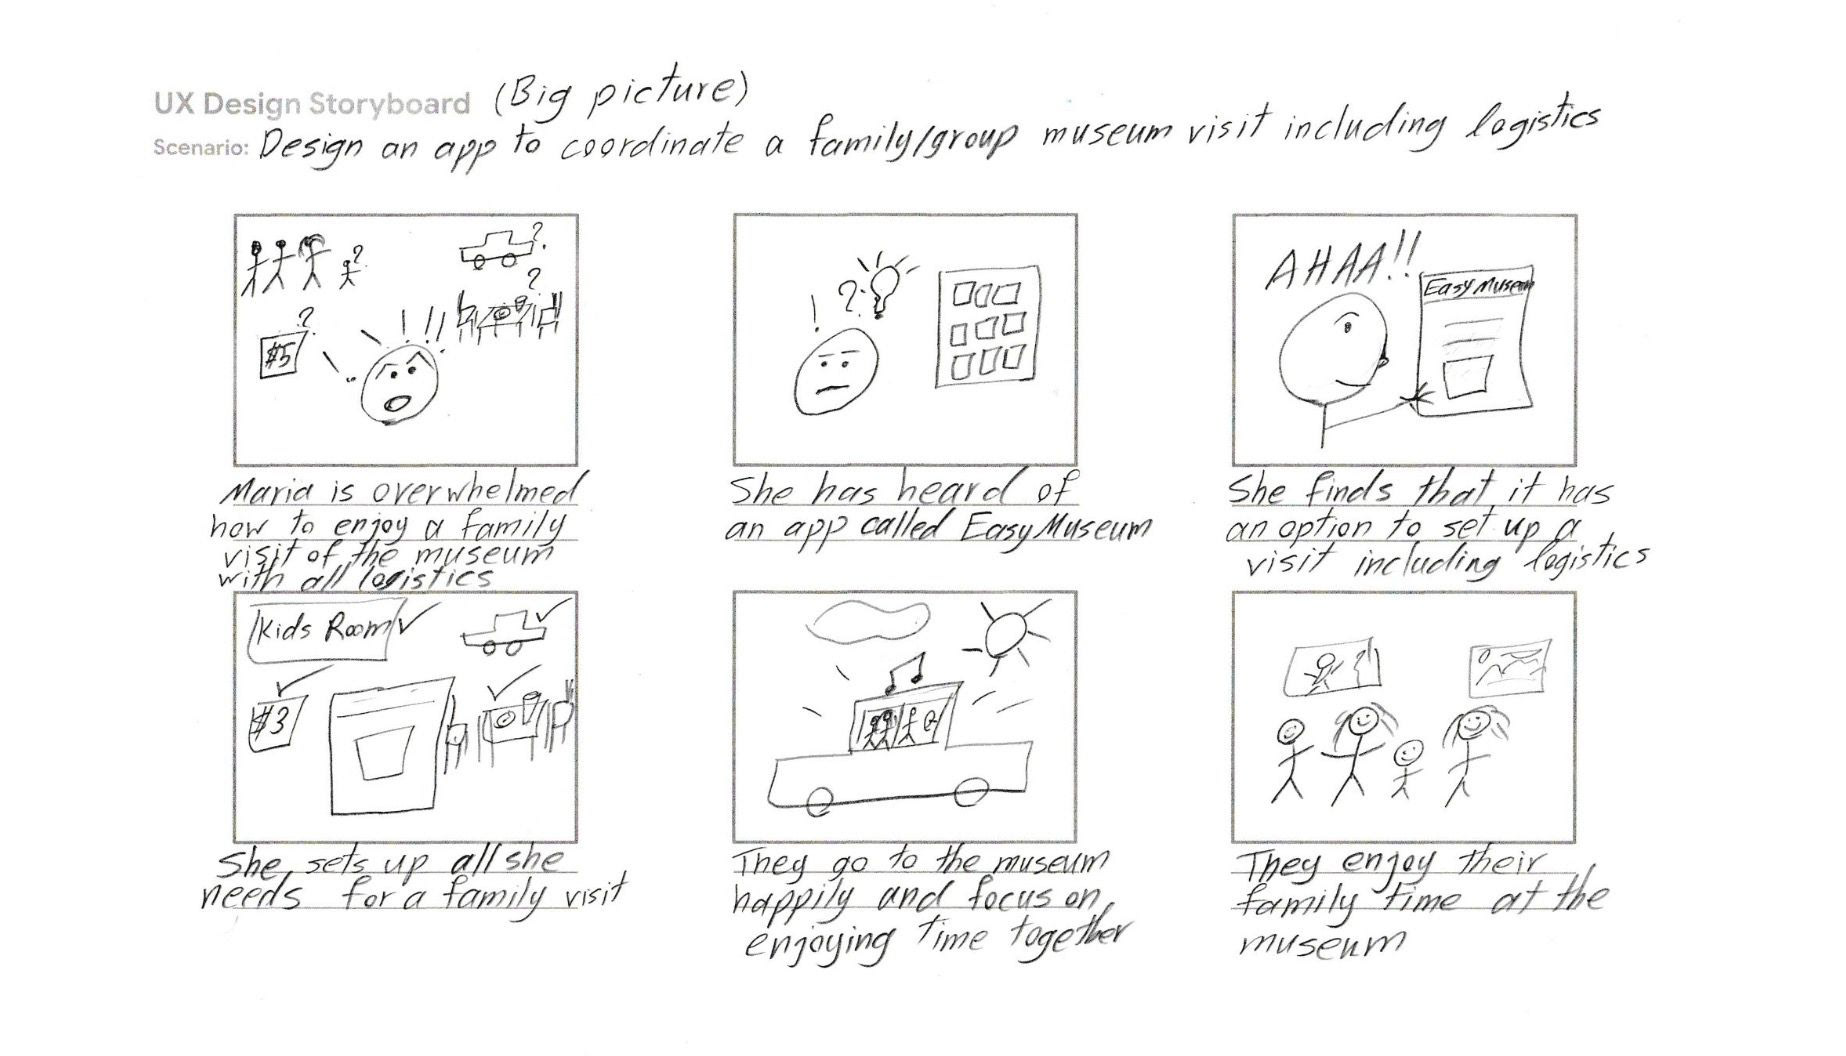 UX Design Storyboard (Big picture)
Scenario: Design an app to coordinate a family/group museum visit including logistics
?
?
?
?
#5
! !!
! ?
AHAA!!
Easy Museum
Maria is overwhelmed
how to enjoy a family
visit of the museum
with all logistics
She has heard of
an app called EasyMuseum
She finds that it has
an option to set up a
visit including logistics
Kids Room
#3
She sets up all she
needs for a family visit
They go to the museum
happily and focus on
enjoying time together
They enjoy their
family time at the
museum